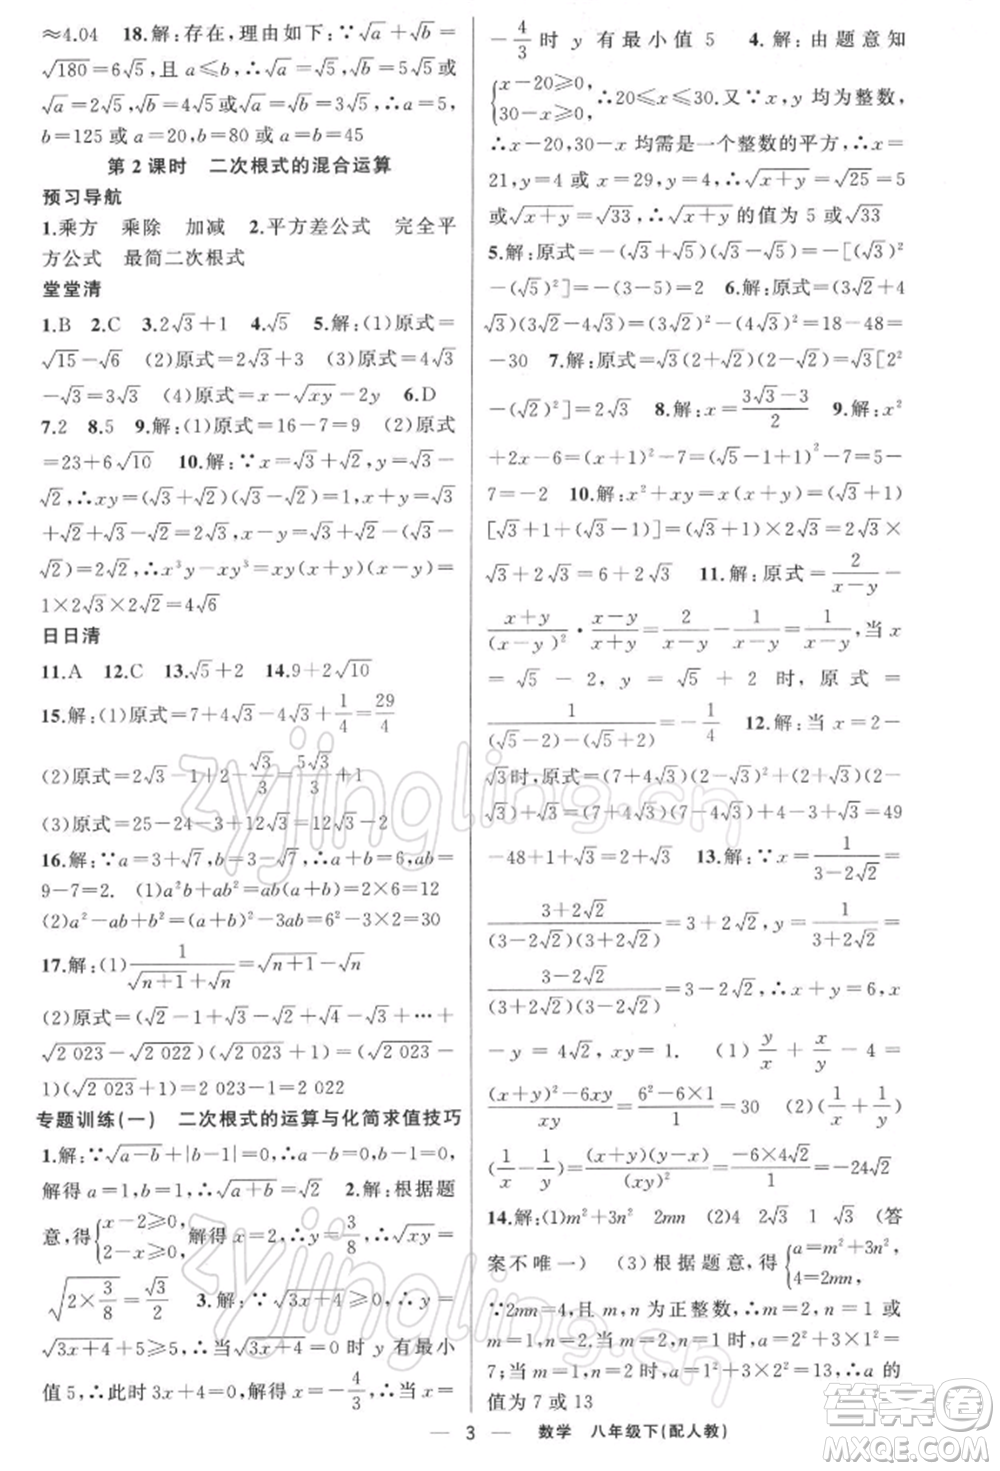 ≈4.04　18.解:存在,理由如下:∵√a+√b=
√180=6√5,且a≤b,∴√a=√5,√b=5√5或
√a=2√5,√b=4√5或√a=3√5,√b=3√5,∴a=5,
b=125或a=20,b=80或a=b=45
第2课时　二次根式的混合运算
预习导航
1.乘方　乘除　加减　2.平方差公式　完全平
方公式　最简二次根式
堂堂清
1.B　2.C　3.2√3+1　4.√5　5.解:(1)原式=
√15-√6　(2)原式=2√3+3　(3)原式=4√3
-√3=3√3　(4)原式=x-√xy-2y　6.D
7.2　8.5　9.解:(1)原式=16-7=9　(2)原式
=23+6√10　10.解:∵x=√3+√2,y=√3-
√2,∴xy=(√3+√2)(√3-√2)=1,x+y=√3
+√2+√3-√2=2√3,x-y=√3+√2-(√3-
√2)=2√2,∴x³y-xy³=xy(x+y)(x-y)=
1×2√3×2√2=4√6
日日清
11.A　12.C　13.√5+2　14.9+2√10
15.解:(1)原式=7+4√3-4√3+1/4=29/4
(2)原式=2√3-1+2-√3/3=5√3/3+1
(3)原式=25-24-3+12√3-12=12√3-14
16.解:∵a=3+√7,b=3-√7,∴a+b=6,ab=
9-7=2.　(1)a²b+ab²=ab(a+b)=2×6=12
(2)a²-ab+b²=(a+b)²-3ab=6²-3×2=30
17.解:(1)1/(√(n+1)+√n)=√(n+1)-√n
(2)原式=(√2-1+√3-√2+√4-√3+…+
√2 023-√2 022)(√2 023+1)=(√2 023-
1)(√2 023+1)=2 023-1=2 022
专题训练(一)　二次根式的运算与化简求值技巧
1.解:∵√(a-b)+|b-1|=0,∴a-b=0,b-1=0,
解得a=1,b=1,∴√(a+b)=√2　2.解:根据题
意,得{x-2≥0, 2-x≥0,解得x=2,∴y=3/8,∴√xy=
√(2×3/8)=√3/2　3.解:∵√(3x+4)≥0,∴y=
√(3x+4)+5≥5,∴当√(3x+4)=0时y有最小
值5,∴此时3x+4=0,解得x=-4/3,∴当x=
-4/3时y有最小值5　4.解:由题意知
{x-20≥0, 30-x≥0,∴20≤x≤30.又∵x,y均为整数,
∴x-20,30-x均需是一个整数的平方,∴x=
21,y=4或x=29,y=4,∴√(x+y)=√25=5
或√(x+y)=√33,∴√(x+y)的值为5或√33
5.解:原式=-(√3+√5)(√3-√5)=-[(√3)²
-(√5)²]=-(3-5)=2　6.解:原式=(3√2+4
√3)(3√2-4√3)=(3√2)²-(4√3)²=18-48=
-30　7.解:原式=√3(2+√2)(2-√2)=√3[2²
-(√2)²]=2√3　8.解:x=(3√3-3)/2　9.解:x²
+2x-6=(x+1)²-7=(√5-1+1)²-7=5-
7=-2　10.解:x²+xy=x(x+y)=(√3+1)
[√3+1+(√3-1)]=(√3+1)×2√3=2√3×
√3+2√3=6+2√3　11.解:原式=2/(x-y)-
(x+y)/(x-y)²·(x-y)/(x+y)=2/(x-y)-1/(x-y)=1/(x-y),当x
=√5-2,y=√5+2时,原式=
1/((√5-2)-(√5+2))=-1/4　12.解:当x=2-
√3时,原式=(7+4√3)(2-√3)²+(2+√3)(2-
√3)+√3=(7+4√3)(7-4√3)+4-3+√3=49
-48+1+√3=2+√3　13.解:∵x=1/(3-2√2)=
(3+2√2)/((3-2√2)(3+2√2))=3+2√2,y=1/(3+2√2)=
(3-2√2)/((3+2√2)(3-2√2))=3-2√2,∴x+y=6,x
-y=4√2,xy=1.　(1)y/x+x/y-4=
((x+y)²-6xy)/xy=(6²-6×1)/1=30　(2)1/x²-1/y²=
(1/x+1/y)(1/x-1/y)=(x+y)(y-x)/(xy)²=(-6×4√2)/1=-24√2
14.解:(1)m²+3n²　2mn　(2)4　2√3　1　√3(答
案不唯一)　(3)根据题意,得{a=m²+3n², 4=2mn,
∵2mn=4,且m,n为正整数,∴m=2,n=1或
m=1,n=2,当m=2,n=1时,a=2²+3×1²=
7;当m=1,n=2时,a=1²+3×2²=13,∴a的
值为7或13
3　数学　八年级下(配人教)
zyjingling.cn
zyjingling.cn